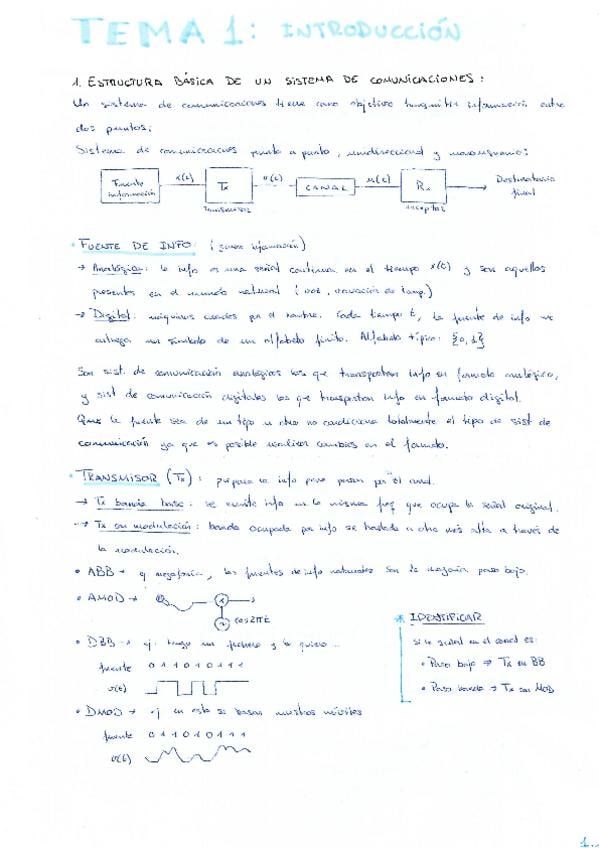 TEMA 1: INTRODUCCIÓN
1. ESTRUCTURA BÁSICA DE UN SISTEMA DE COMUNICACIONES:
Un sistema de comunicaciones tiene como objetivo transmitir información entre
dos puntos:
Sistema de comunicaciones punto a punto, unidireccional y monousuario:
Fuente información x(t) Tx v(t) CANAL u(t) Rx Destinatario final
transmisor receptor
· FUENTE DE INFO: ( información)
→ Analógica: la info es una señal continua en el tiempo x(t) y son aquellas
presentes en el mundo natural (voz, variación de temp.)
→ Digital: máquinas creadas por el hombre. Cada tiempo t, la fuente de info
entrega un símbolo de un alfabeto finito. Alfabeto típico: {0,1}
Son sist. de comunicación analógicos los que transportan info en formato analógico,
y sist de comunicación digitales los que transportan info en formato digital.
Que la fuente sea de un tipo u otro no condiciona totalmente el tipo de sist de
comunicación ya que es posible realizar cambios en el formato.
· TRANSMISOR (Tx): prepara la info para pasar por el canal.
→ Tx banda base: se envía info en la misma freq que ocupa la señal original.
→ Tx con modulación: banda ocupada por info se traslada a otra más alta a través de
la modulación.
• ABB → ej. megafonía, las fuentes de info naturales son la mayoría paso bajo.
• AMOD → x
cos2πt
* IDENTIFICAR
si la señal en el canal es:
• Paso bajo ⇒ Tx en BB
• Paso banda ⇒ Tx con MOD
• DBB → ej: tengo un fichero y lo quiero...
fuente 0 1 1 0 1 0 1 1 1
v(t)
• DMOD → ej en esto se basan nuestros móviles
fuente 0 1 1 0 1 0 1 1 1
v(t)
1